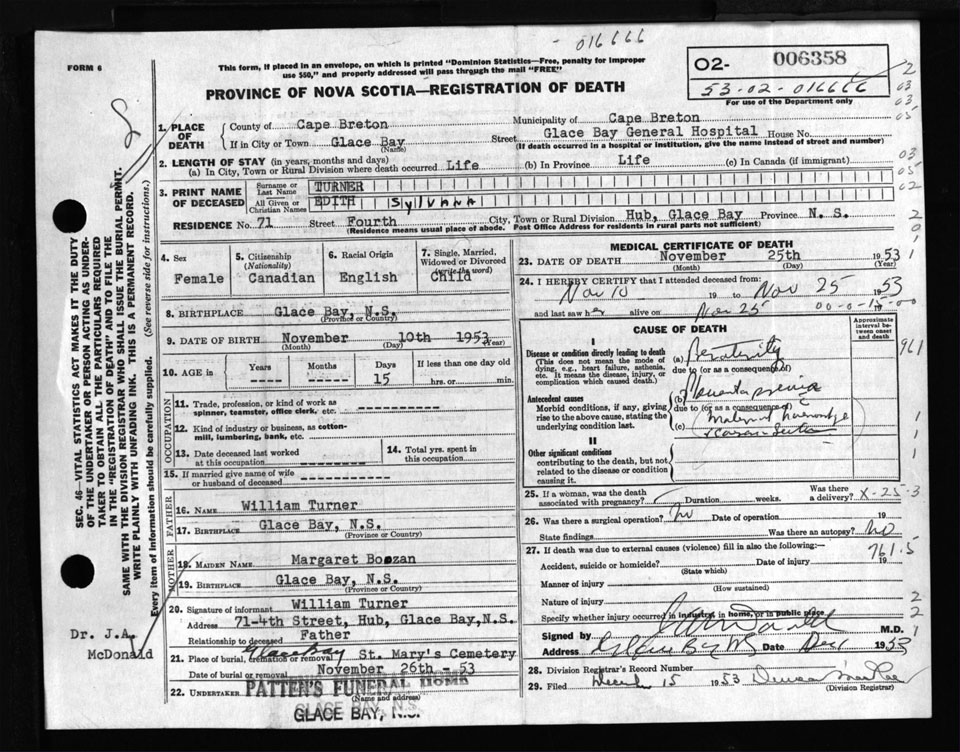 016666
FORM 6
This form, if placed in an envelope, on which is printed "Dominion Statistics—Free, penalty for improper
use $50," and properly addressed will pass through the mail "FREE"
02- 006358
53-02-016666
For use of the Department only
PROVINCE OF NOVA SCOTIA—REGISTRATION OF DEATH
1. PLACE OF DEATH
County of Cape Breton Municipality of Cape Breton
If in City or Town Glace Bay (Name) Street Glace Bay General Hospital House No.
(If death occurred in a hospital or institution, give the name instead of street and number)
2. LENGTH OF STAY (in years, months and days)
(a) In City, Town or Rural Division where death occurred Life (b) In Province Life (c) In Canada (if immigrant)
3. PRINT NAME OF DECEASED
Surname or Last Name TURNER
All Given or Christian Names EDITH SYLVANA
RESIDENCE No. 71 Street Fourth City, Town or Rural Division Hub, Glace Bay Province N. S.
(Residence means usual place of abode. Post Office Address for residents in rural parts not sufficient)
4. Sex Female
5. Citizenship (Nationality) Canadian
6. Racial Origin English
7. Single, Married, Widowed or Divorced (write the word) Child
8. BIRTHPLACE Glace Bay, N.S.
(Province or Country)
9. DATE OF BIRTH November 10th 1953
(Month) (Day) (Year)
10. AGE in Years ---- Months ----- Days 15 If less than one day old hrs. or min.
OCCUPATION
11. Trade, profession, or kind of work as spinner, teamster, office clerk, etc.
12. Kind of industry or business, as cotton-mill, lumbering, bank, etc.
13. Date deceased last worked at this occupation
14. Total yrs. spent in this occupation
15. If married give name of wife or husband of deceased
FATHER
16. NAME William Turner
17. BIRTHPLACE Glace Bay, N.S.
(Province or Country)
MOTHER
18. MAIDEN NAME Margaret Boozan
19. BIRTHPLACE Glace Bay, N.S.
(Province or Country)
20. Signature of informant William Turner
Address 71-4th Street, Hub, Glace Bay, N.S.
Relationship to deceased Father
21. Place of burial, cremation or removal Glace Bay St. Mary's Cemetery
Date of burial or removal November 26th - 53
22. UNDERTAKER PATTEN'S FUNERAL HOME
(Name and address)
GLACE BAY, N.S.
MEDICAL CERTIFICATE OF DEATH
23. DATE OF DEATH November 25th 1953
(Month) (Day) (Year)
24. I HEREBY CERTIFY that I attended deceased from:
Nov 10 19 to Nov 25 1953
and last saw her alive on Nov 25
00-0-15-00
CAUSE OF DEATH
Approximate interval between onset and death
I
Disease or condition directly leading to death
(This does not mean the mode of dying, e.g., heart failure, asthenia, etc. It means the disease, injury, or complication which caused death.)
(a)
due to (or as a consequence of)
Antecedent causes
Morbid conditions, if any, giving rise to the above cause, stating the underlying condition last.
(b)
due to (or as a consequence of)
(c)
II
Other significant conditions
contributing to the death, but not related to the disease or condition causing it.
25. If a woman, was the death associated with pregnancy? Duration weeks. Was there a delivery?
X-25-3
26. Was there a surgical operation? No Date of operation 19
State findings Was there an autopsy? No
27. If death was due to external causes (violence) fill in also the following:—
761.5
Accident, suicide or homicide? Date of injury 19
(State which)
Manner of injury
(How sustained)
Nature of injury
Specify whether injury occurred in industry, in home, or in public place
Signed by M.D.
Address Glace Bay NS Date Dec 1 1953
28. Division Registrar's Record Number
29. Filed Dec 15 1953
(Division Registrar)
SEC. 46—VITAL STATISTICS ACT MAKES IT THE DUTY
OF THE UNDERTAKER OR PERSON ACTING AS UNDER-
TAKER TO OBTAIN ALL THE PARTICULARS REQUIRED
IN THE "REGISTRATION OF DEATH" AND TO FILE THE
SAME WITH THE DIVISION REGISTRAR WHO SHALL ISSUE THE BURIAL PERMIT.
WRITE PLAINLY WITH UNFADING INK. THIS IS A PERMANENT RECORD.
Every item of information should be carefully supplied. (See reverse side for instructions.)
Dr. J.A.
McDonald